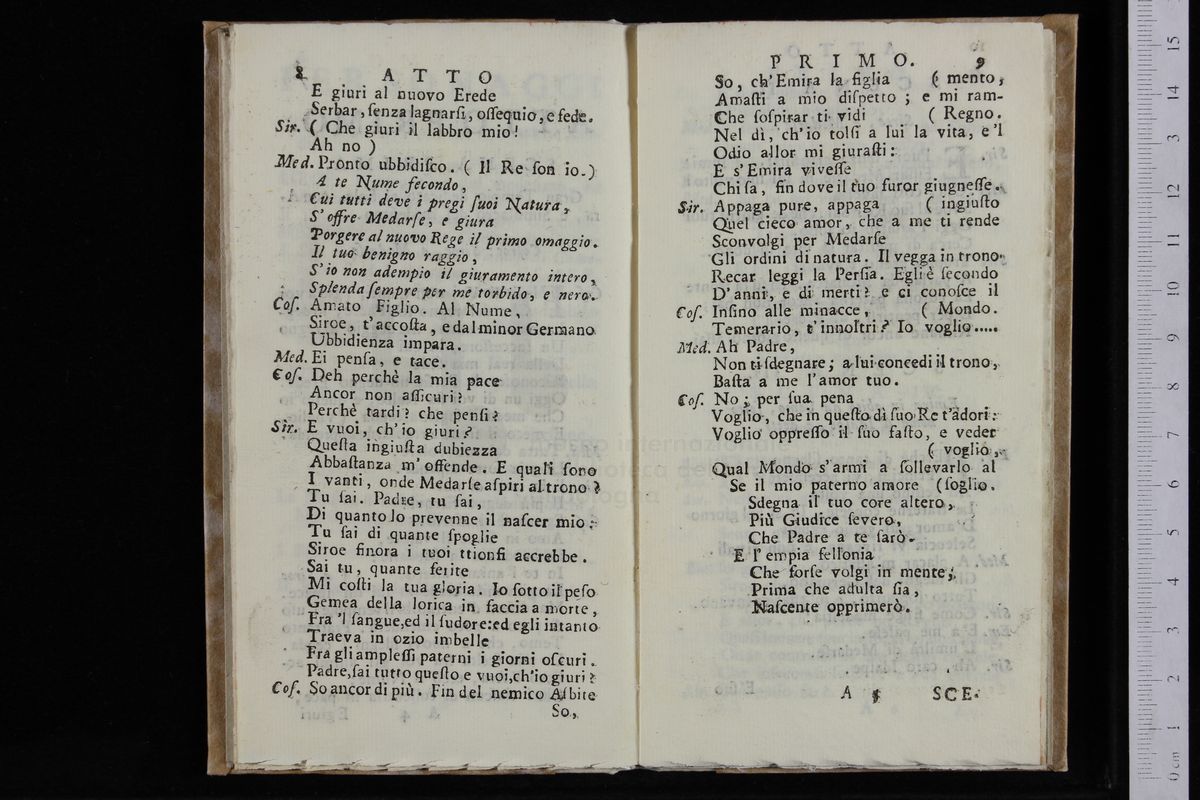 8 ATTO
E giuri al nuovo Erede
Serbar, ſenza lagnarſi, oſſequio, e fede.
Sir. ( Che giuri il labbro mio!
Ah no )
Med. Pronto ubbidiſco. ( Il Re ſon io. )
A te Nume fecondo,
Cui tutti deve i pregi ſuoi Natura,
S' offre Medarſe, e giura
Porgere al nuovo Rege il primo omaggio.
Il tuo benigno raggio,
S' io non adempio il giuramento intero,
Splenda ſempre per me torbido, e nero.
Coſ. Amato Figlio. Al Nume,
Siroe, t' accoſta, e dal minor Germano
Ubbidienza impara.
Med. Ei penſa, e tace.
Coſ. Deh perchè la mia pace
Ancor non aſſicuri?
Perchè tardi? che penſi?
Sir. E vuoi, ch' io giuri?
Queſta ingiuſta dubiezza
Abbaſtanza m' offende. E quali ſono
I vanti, onde Medarſe aſpiri al trono?
Tu ſai. Padre, tu ſai,
Di quanto lo prevenne il naſcer mio;
Tu ſai di quante ſpoglie
Siroe finora i tuoi ttionfi accrebbe.
Sai tu, quante ferite
Mi coſti la tua gloria. Io ſotto il peſo
Gemea della lorica in faccia a morte,
Fra 'l ſangue, ed il ſudore: ed egli intanto
Traeva in ozio imbelle
Fra gli ampleſſi paterni i giorni oſcuri.
Padre, ſai tutto queſto e vuoi, ch' io giuri?
Coſ. So ancor di più. Fin del nemico Asbite
So,
PRIMO. 9
So, ch' Emira la figlia ( mento,
Amaſti a mio diſpetto; e mi ram-
Che ſoſpirar ti vidi ( Regno.
Nel dì, ch' io tolſi a lui la vita, e 'l
Odio allor mi giuraſti:
E s' Emira viveſſe
Chi ſa, fin dove il tuo furor giugneſſe.
Sir. Appaga pure, appaga ( ingiuſto
Quel cieco amor, che a me ti rende
Sconvolgi per Medarſe
Gli ordini di natura. Il vegga in trono
Recar leggi la Perſia. Egli è ſecondo
D' anni, e di merti? e ci conoſce il
Coſ. Inſino alle minacce, ( Mondo.
Temerario, t' innoltri? Io voglio.....
Med. Ah Padre,
Non ti ſdegnare; a lui concedi il trono,
Baſta a me l' amor tuo.
Coſ. No; per ſua pena
Voglio, che in queſto dì ſuo Re t' adori:
Voglio oppreſſo il ſuo faſto, e veder
( voglio,
Qual Mondo s' armi a ſollevarlo al
Se il mio paterno amore (ſoglio.
Sdegna il tuo core altero,
Più Giudice ſevero,
Che Padre a te ſarò.
E l' empia fellonia
Che forſe volgi in mente,
Prima che adulta ſia,
Naſcente opprimerò.
A 5 SCE.